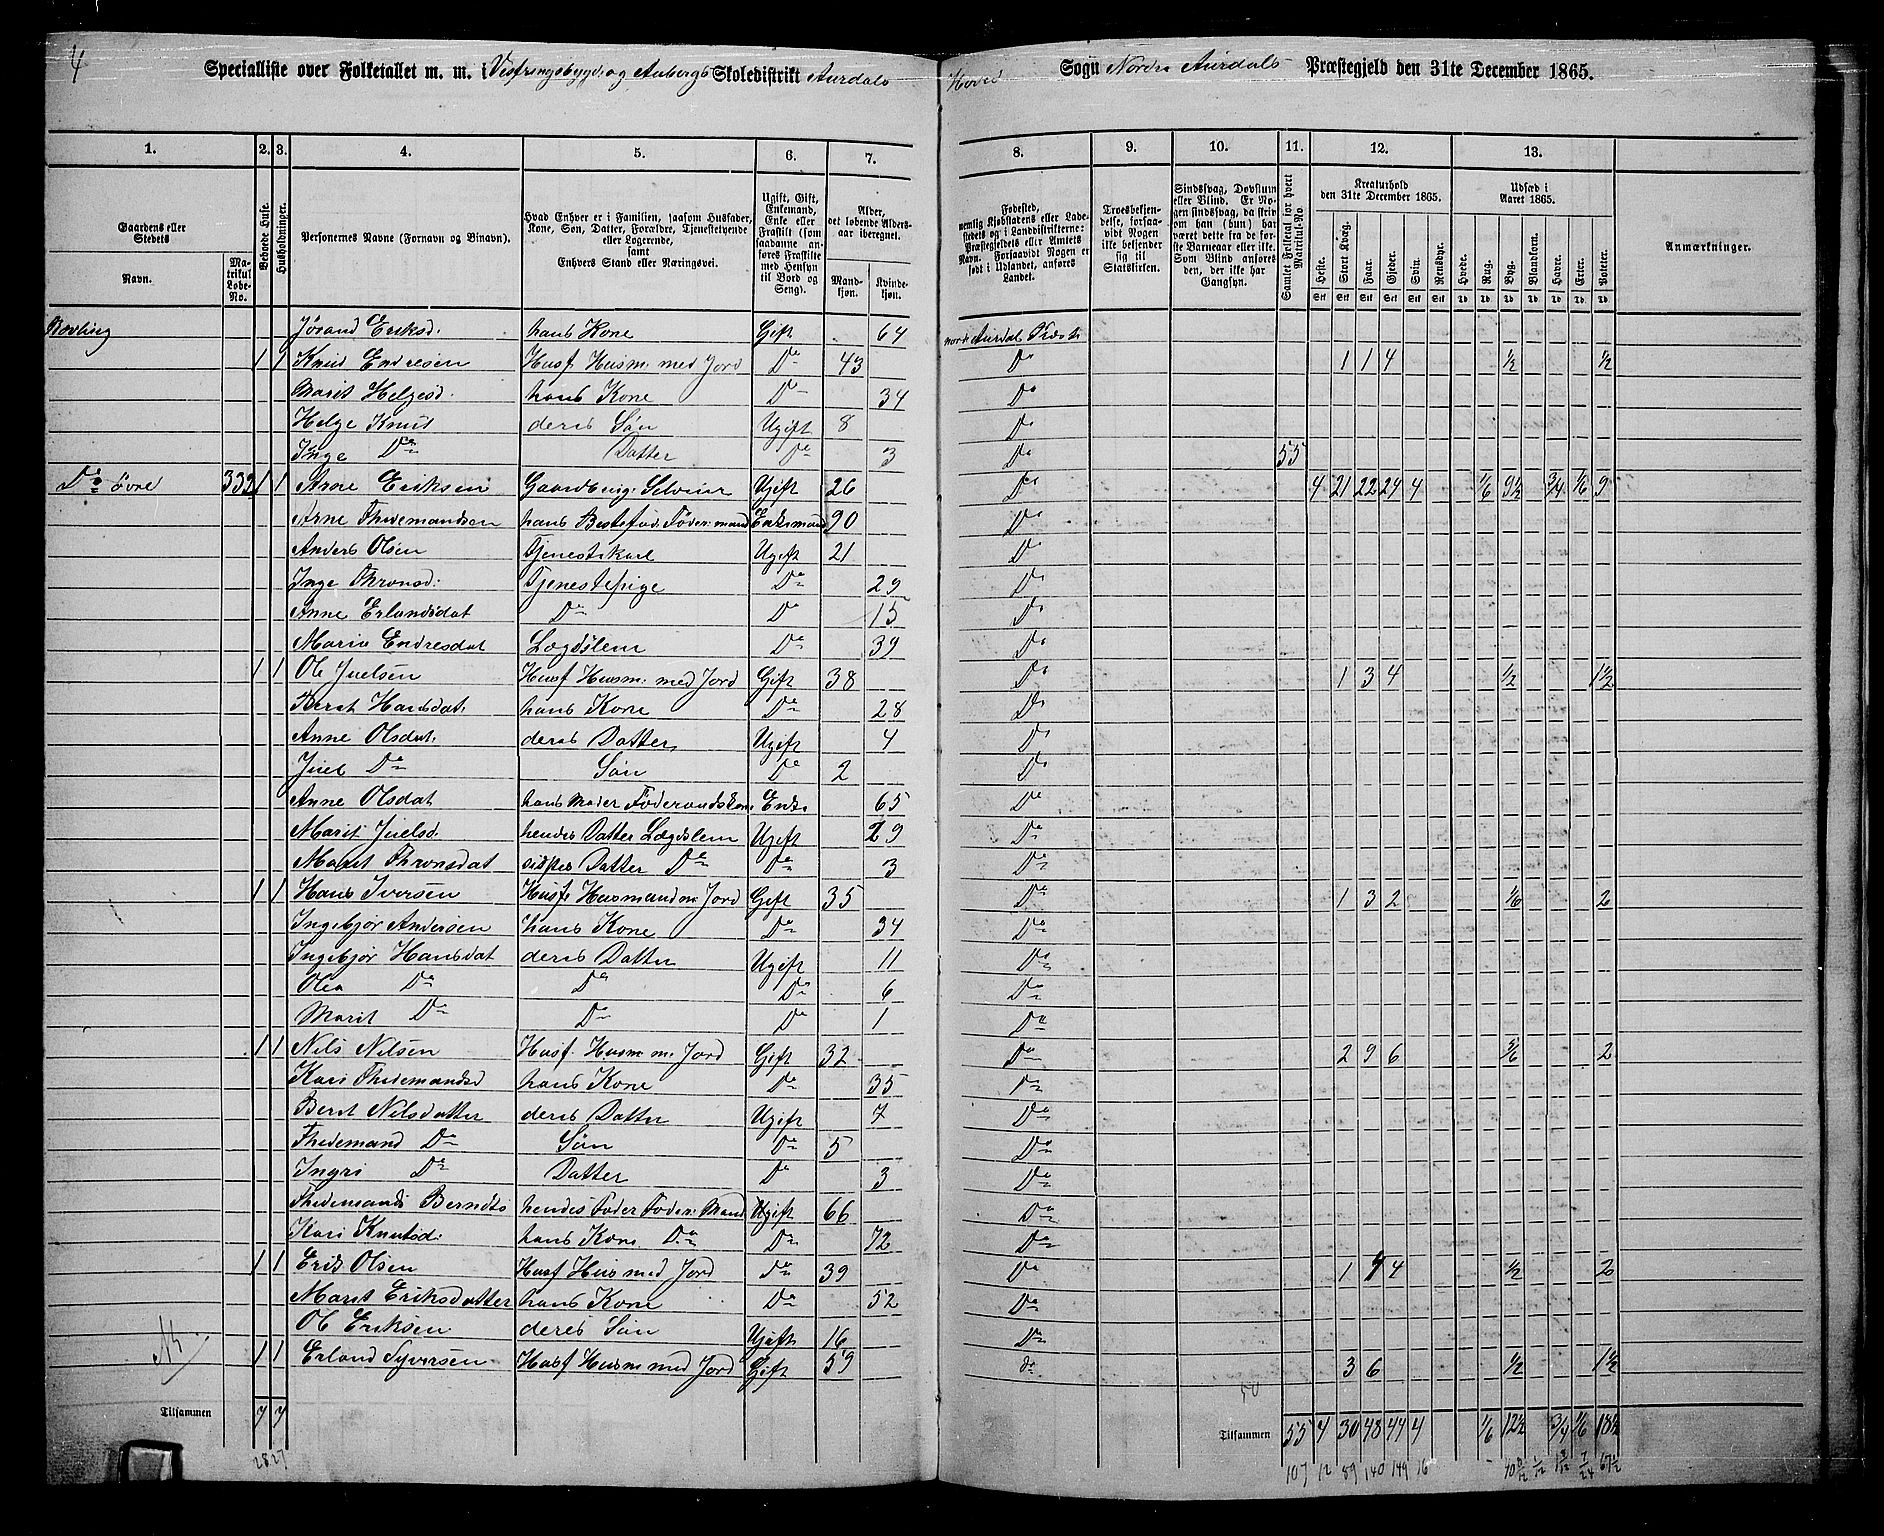 4
Specialliste over Folketallet m. m. i Vestringsbygd og Aabergs Skoledistrikt Aurdals Hoved Sogn Nordre Aurdals Præstegjeld den 31te December 1865.
1. 2. 3. 4. 5. 6. 7. 8. 9. 10. 11. 12. 13.
Gaardens eller Stedets
Navn.
Matrikul Løbe-No.
Beboede Huse.
Husholdninger.
Personernes Navne (Fornavn og Binavn).
Hvad Enhver er i Familien, saasom Husfader, Kone, Søn, Datter, Forældre, Tjenestetyende eller Logerende, samt Enhvers Stand eller Næringsvei.
Ugift, Gift, Enkemand, Enke eller Fraskilt (som saadanne anføres Fraskilte med Hensyn til Bord og Seng).
Alder, det løbende Aldersaar iberegnet.
Mandkjøn.
Kvindekjøn.
Fødested, nemlig Kjøbstadens eller Ladestedets og i Landdistrikterne: Præstegjeldets eller Amtets Navn. Forsaavidt Nogen er født i Udlandet, anføres Landet.
Troesbekjendelse, forsaavidt Nogen ikke bekjender sig til Statskirken.
Sindssvag, Døvstum eller Blind. Er Nogen sindssvag, da skrives om han (hun) har været dette fra de første Barneaar eller ikke. Som Blind anføres den, der ikke har Gangsyn.
Samlet Folketal for hvert Matrikul-No.
Kreaturhold den 31te December 1865.
Heste. Stort Kvæg. Faar. Gjeder. Svin. Rensdyr.
Udsæd i Aaret 1865.
Hvede. Rug. Byg. Blandkorn. Havre. Erter. Poteter.
Anmærkninger.
Jørand Eriksd. hans Kone Gift 64 Nordr Aurdal Præst
1 1 Knud Endresen Husf Husm: med Jord Do 43 Do 1 1 4 ½ ½
Marit Helgesd. hans Kone Do 34 Do
Helge Knud deres Søn Ugift 8 Do
Inge Do Datter Do 3 Do 55
Do øvre 332 1 1 Arne Eriksen Gaardbrug: Selveier Ugift 26 Do 4 21 22 24 4 1/6 9½ 3/4 1/6 9
Arne Thidemandsen hans Bestefad: Føder:mand Enkemand 90 Do
Anders Olsen Tjenestekarl Ugift 21 Do
Inge Thronsd: Tjenestepige Do 29 Do
Anne Erlandsdat Do Do 15 Do
Maria Endresdat Lægdslem Do 39 Do
1 1 Ole Juelsen Husf Husm: med Jord Gift 38 Do 1 3 4 ½ 1½
Berit Hansdat: hans Kone Do 28 Do
Anne Olsdat: deres Datter Ugift 4 Do
Juel Do Søn Do 2 Do
Anne Olsdat hans Moder Føderaadskone Enke 65 Do
Marit Juelsd. hendes Datter Lægdslem Ugift 29 Do
Marit Thronsdat sidstes Datter Do Do 3 Do
1 1 Hans Iversen Husf: Husmand m: Jord Gift 35 Do 1 3 2 1/6 2
Ingebjør Andersen hans Kone Do 34 Do
Ingebjør Hansdat deres Datter Ugift 11 Do
Olea Do Do Do 6 Do
Marit Do Do Do 1 Do
1 1 Nils Nilsen Husf. Husm m: Jord Gift 32 Do 2 9 6 5/6 2
Kari Thidemandsd hans Kone Do 35 Do
Berit Nilsdatter deres Datter Ugift 7 Do
Thidemand Do Søn Do 5 Do
Ingri Do Datter Do 3 Do
Thidemand Berndts hendes Fader Føder: Mand Ugift 66 Do
Kari Knutsd: hans Kone Do Do 72 Do
1 1 Erik Olsen Husf Hus med Jord Do 39 Do 1 4 ½ 2
Marit Eriksdatter hans Kone Do 52 Do
Ole Eriksen deres Søn Ugift 16 Do
1 1 Erland Syversen Husf Husm med Jord Gift 59 do 3 6 ½ 1½
50
Tilsammen 7 7
Tilsammen 55 4 30 48 44 4 1/6 12½ 3/4 1/6 18½
28 27
107 12 89 140 149 16 67½